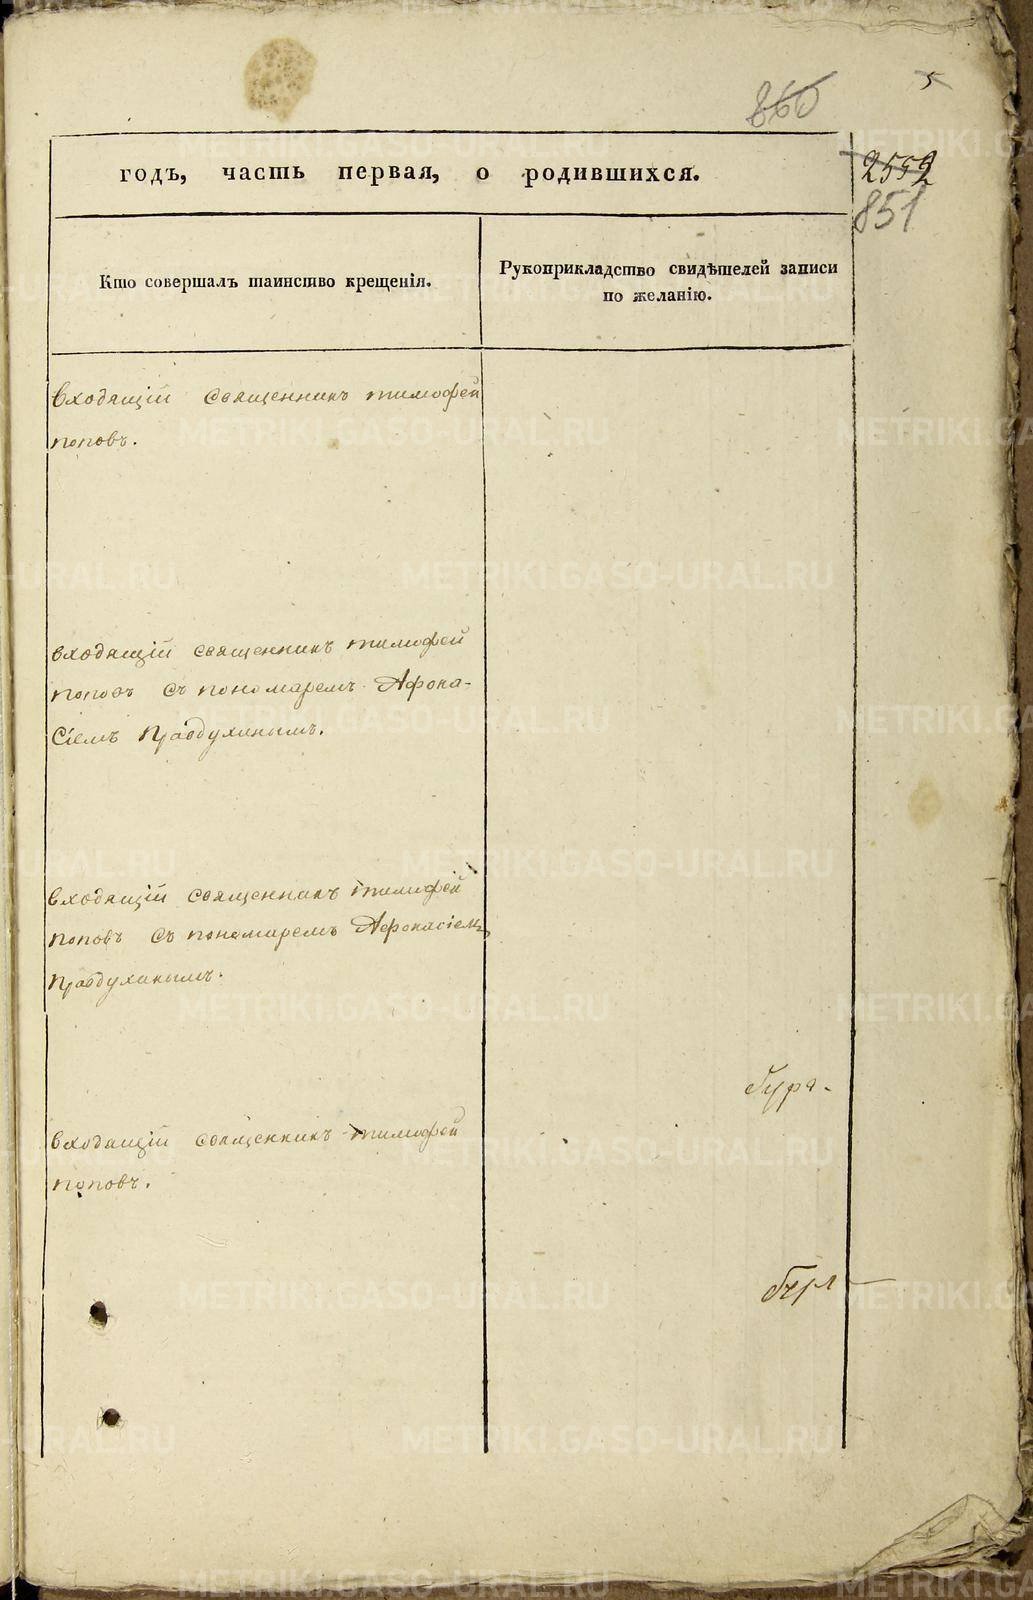 5
860
годъ, часть первая, о родившихся.
2552
851
Кто совершалъ таинство крещенія.
Рукоприкладство свидѣтелей записи
по желанію.
входящій священникъ тимофей
поповъ.
входящій священникъ тимофей
поповъ съ пономаремъ Афона-
сіемъ Правдухинымъ.
входящій священникъ тимофей
поповъ съ пономаремъ Афонасіемъ
Правдухинымъ.
входящій священникъ тимофей
поповъ.
METRIKI.GASO-URAL.RU